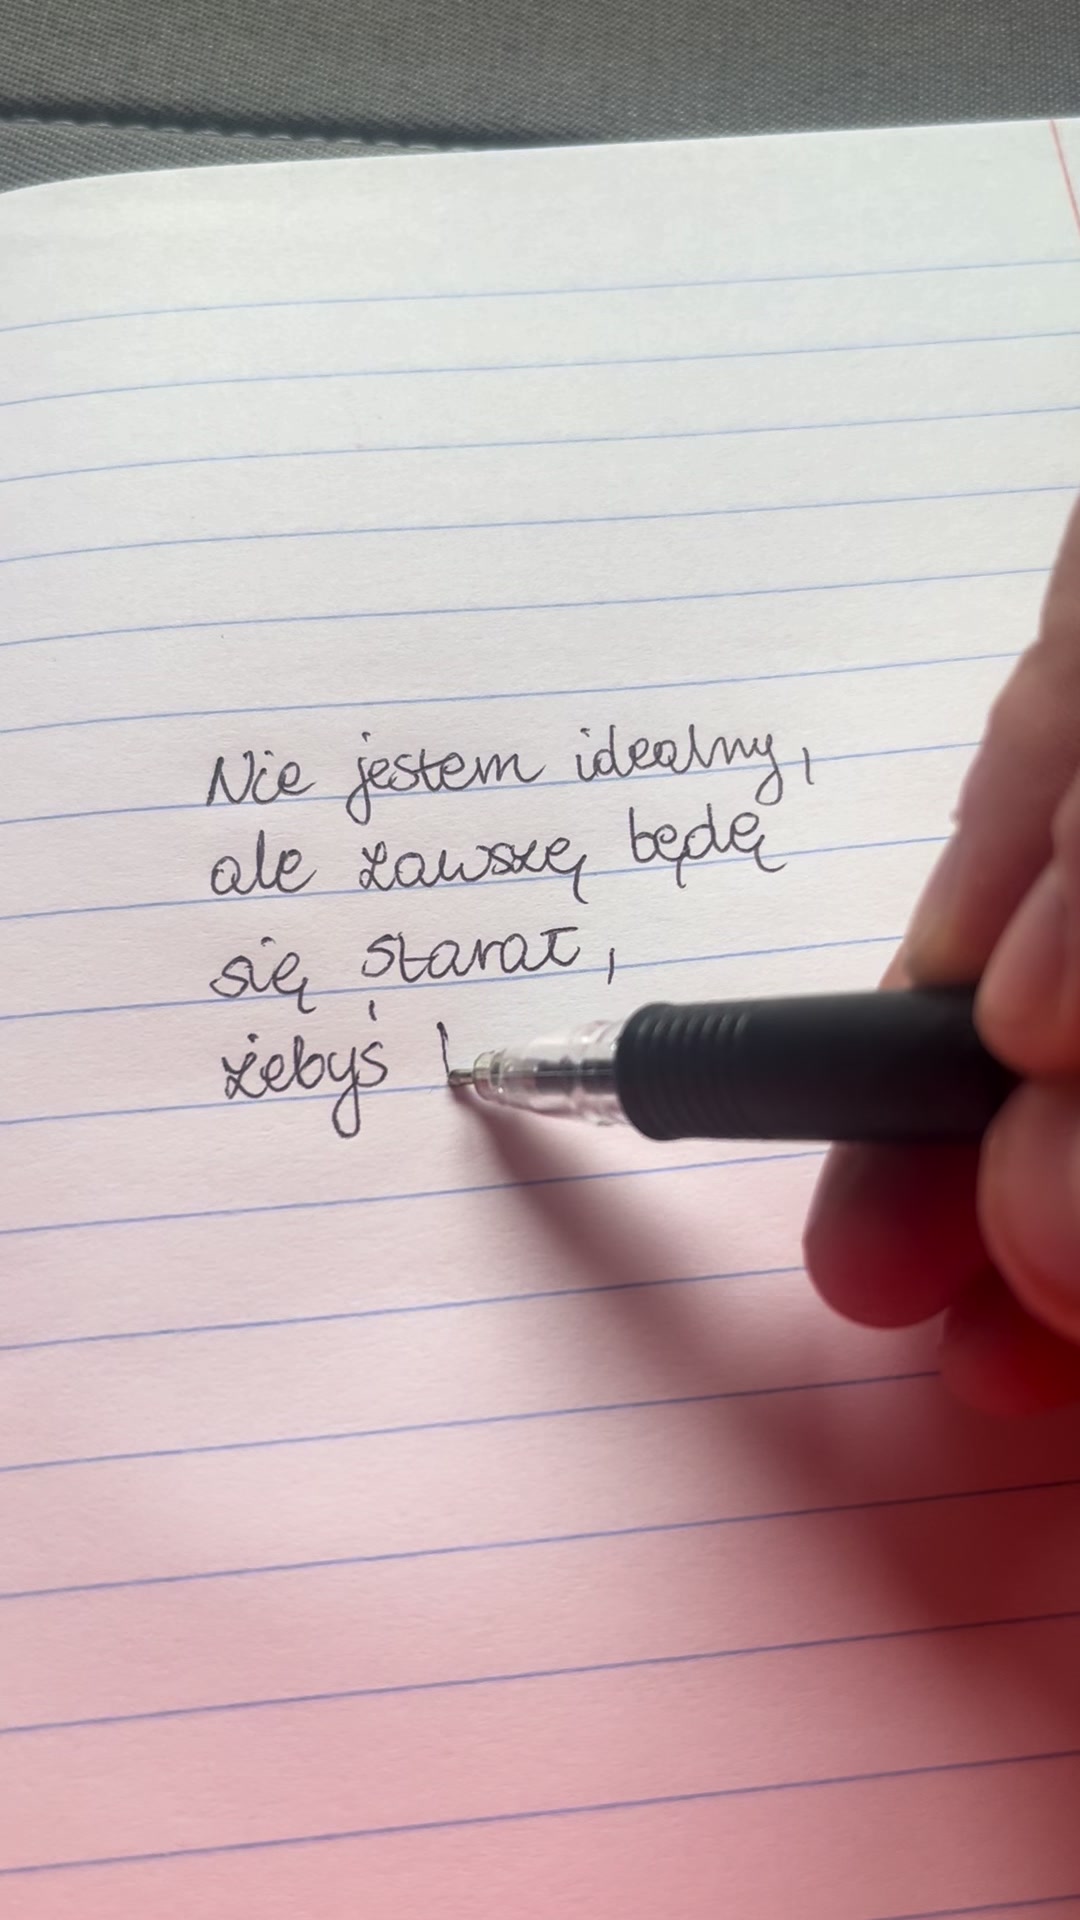 Nie jestem idealny,
ale zawszę będę
się starał,
żebyś